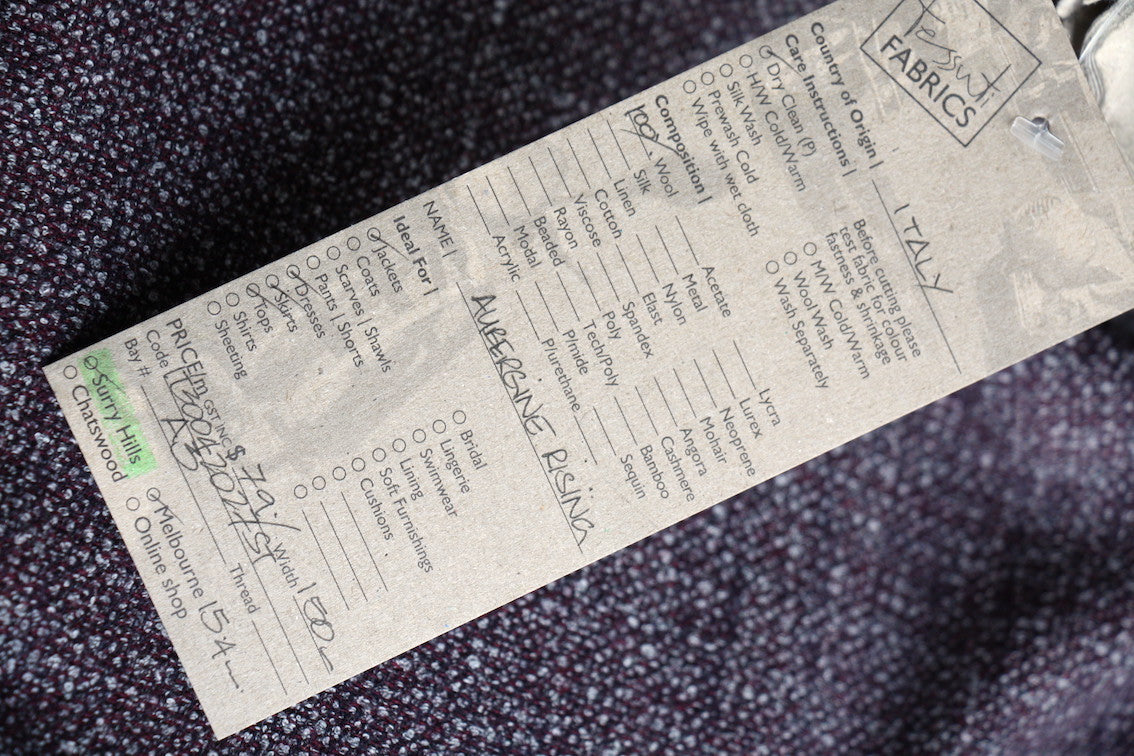 Tessuti
FABRICS
Country of Origin | ITALY
Care Instructions |
Dry Clean (P)
H/W Cold/Warm
Silk Wash
Prewash Cold
Wipe with wet cloth
Before cutting please
test fabric for colour
fastness & shrinkage
M/W Cold/Warm
Wool Wash
Wash Separately
Composition |
100% Wool
Silk
Linen
Cotton
Viscose
Rayon
Beaded
Modal
Acrylic
Acetate
Metal
Nylon
Elast
Spandex
Poly
Tech/Poly
P/mide
P/urethane
Lycra
Lurex
Neoprene
Mohair
Angora
Cashmere
Bamboo
Sequin
NAME | AUBERGINE RISING
Ideal For |
Jackets
Coats
Scarves | Shawls
Pants | Shorts
Dresses
Skirts
Tops
Shirts
Sheeting
Bridal
Lingerie
Swimwear
Lining
Soft Furnishings
Cushions
PRICE/m GST INC $ 79/ Width | 150
Code
Bay # A3 Thread
Surry Hills
Chatswood
Melbourne 154m
Online shop